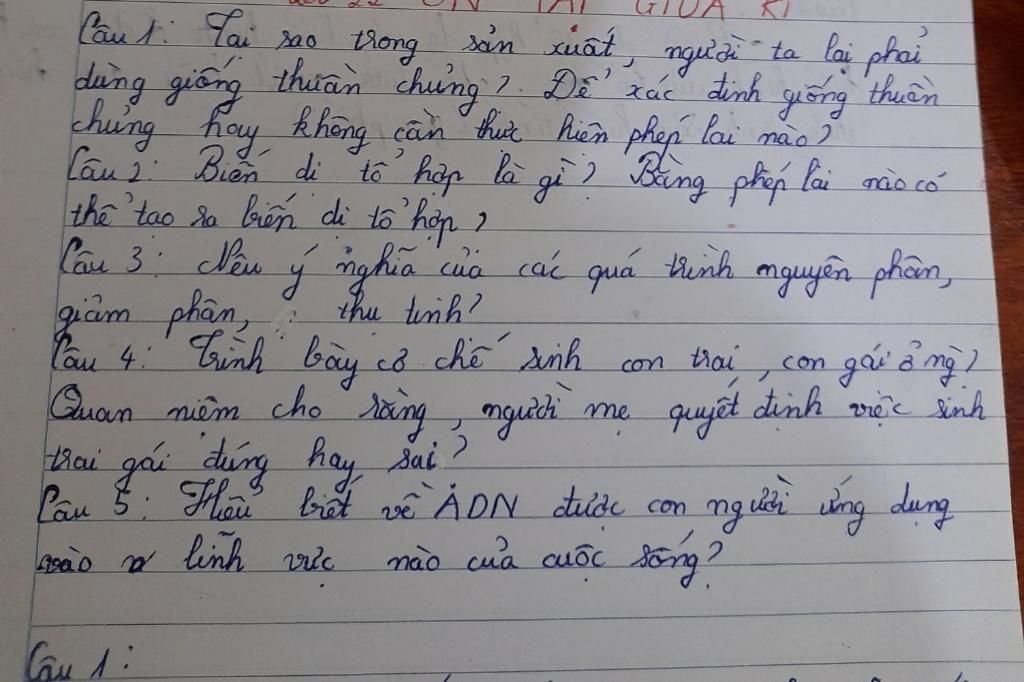 ÔN TẬP GIỮA KÌ
Câu 1: Tại sao trong sản xuất, người ta lại phải
dùng giống thuần chủng? Để xác định giống thuần
chủng hay không cần thực hiện phép lai nào?
Câu 2: Biến dị tổ hợp là gì? Bằng phép lai nào có
thể tạo ra biến dị tổ hợp?
Câu 3: Nêu ý nghĩa của các quá trình nguyên phân,
giảm phân, thụ tinh?
Câu 4: Trình bày cơ chế sinh con trai, con gái ở ng?
Quan niệm cho rằng, người mẹ quyết định việc sinh
trai gái đúng hay sai?
Câu 5: Hiểu biết về ADN được con người ứng dụng
vào lĩnh vực nào của cuộc sống?
Câu 1: